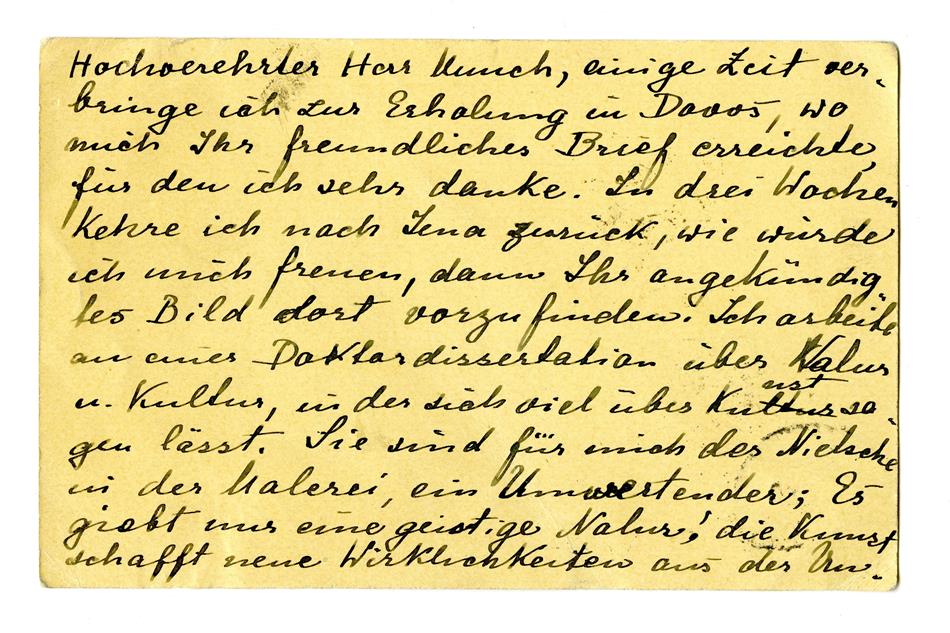 Hochverehrter Herr Munch, einige Zeit ver-
bringe ich zur Erholung in Davos, wo
mich Ihr freundliches Brief erreichte,
für den ich sehr danke. In drei Wochen
kehre ich nach Jena zurück, wie würde
ich mich freuen, dann Ihr angekündig
tes Bild dort vorzufinden. Ich arbeite
an einer Doktordissertation über Natur
u. Kultur, in der sich viel über Kunst sa-
gen lässt. Sie sind für mich der Nietsche
in der Malerei, ein Umwertender; Es
giebt nur eine geistige Natur! die Kunst
schafft neue Wirklichkeiten aus der Um-